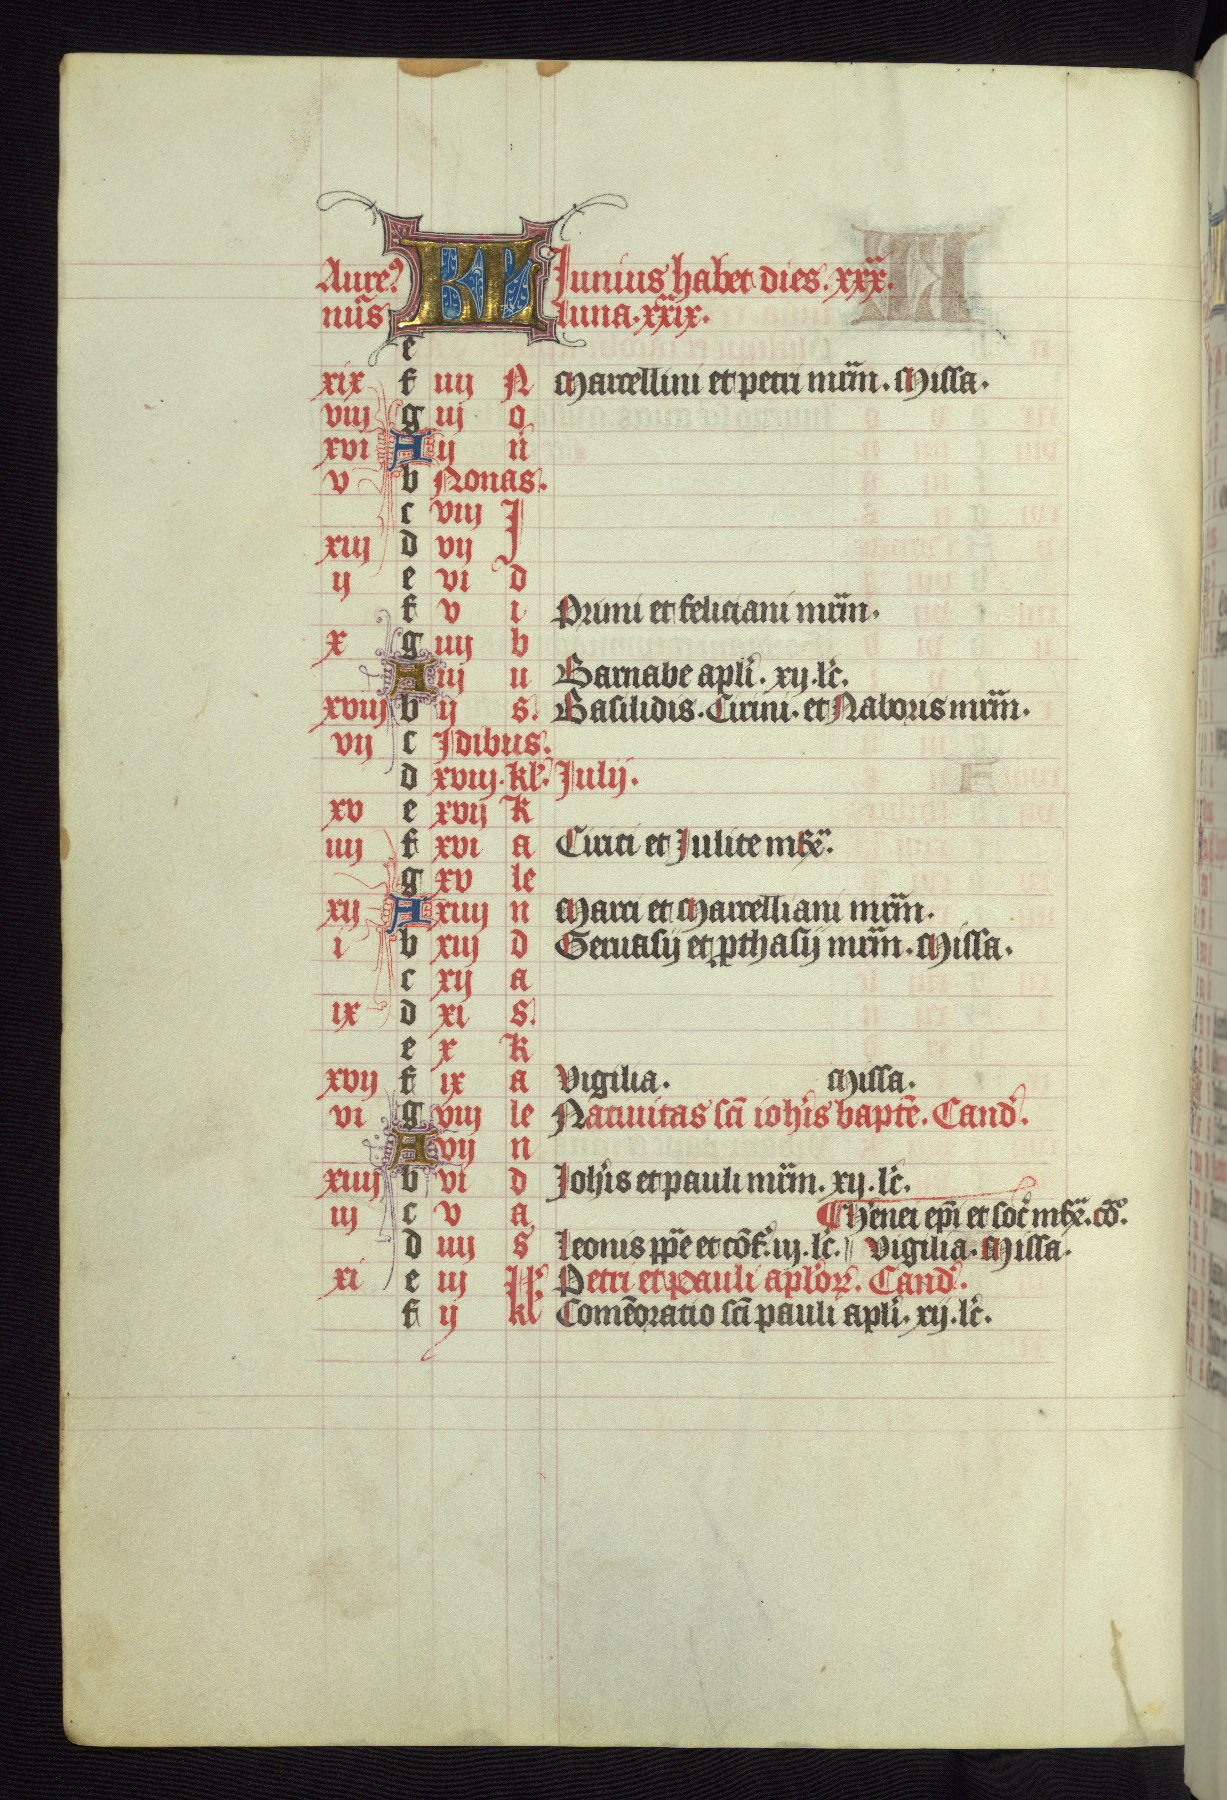 Aure9 KL Junius habet dies. xxx.
nūs luna. xxix.
e
xix f iiij N Marcellini et petri mrm̄. Missa.
viij g iij o
xvi A ij n
v b Nonas.
c viij J
xiij d vij
ij e vi d
f v i Primi et feliciani mrm̄.
x g iiij b
A iij u Barnabe apl'i. xij. lc̄.
xviij b ij s. Basilidis. Cirini. et Naboris mrm̄.
vij c Jdibus.
d xviij. kl'. Julij.
xv e xvij K
iiij f xvi a Cirici et Julite mr̄.
g xv le
xij A xiiij n Marci et Marcelliani mrm̄.
i b xiij d Geruasij et ꝓthasij mrm̄. Missa.
c xij a
ix d xi s.
e x K
xvij f ix a Vigilia. Missa.
vi g viij le Natiuitas sc̄i ioh'is bapte̅. Cand'.
A vij n
xiiij b vi d Joh'is et pauli mrm̄. xij. lc̄.
iij c v a ¶ Herenei ep̄i et soc̄ mr̄. cō.
d iiij s Leonis pp̄e et cōf. iij. lc̄. Vigilia. Missa.
xi e iij Jl' Petri et Pauli aplōꝝ. Cand'.
f ij kl Comēoratio sc̄i pauli apl'i. xij. lc̄.